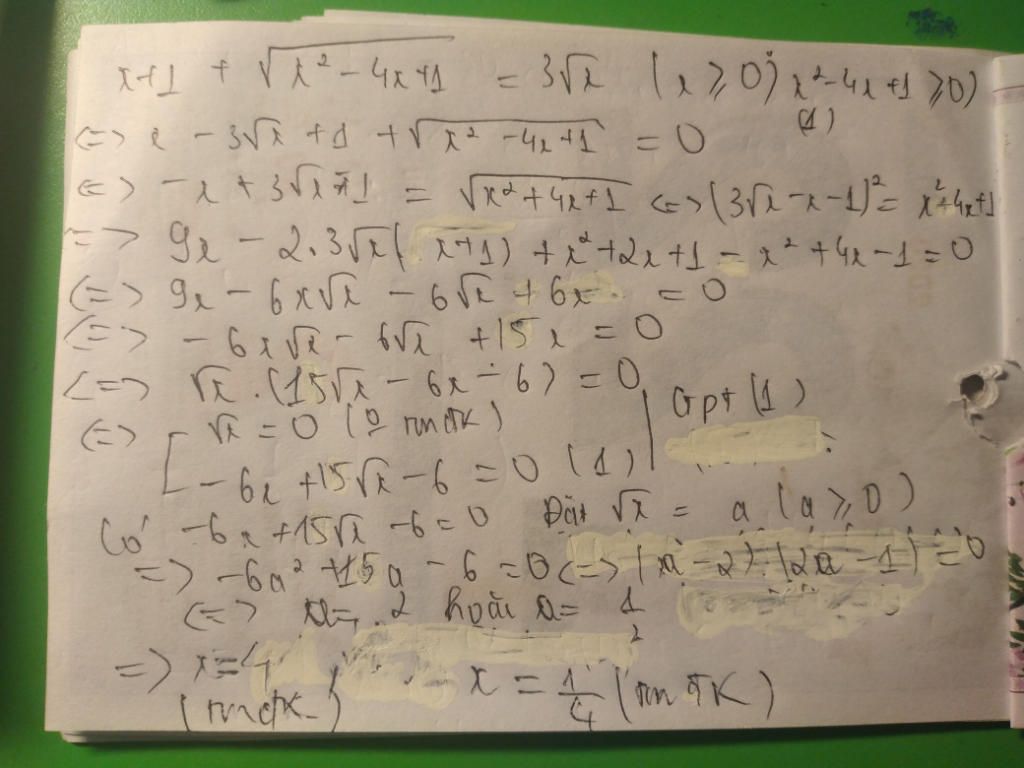 x+1 + √(x² - 4x+1) = 3√x (x ≥ 0; x² - 4x+1 ≥ 0) (1)
<=> x - 3√x + 1 + √(x² - 4x+1) = 0
<=> -x + 3√x - 1 = √(x² + 4x+1) <=> (3√x - x - 1)² = x² + 4x+1
=> 9x - 2.3√x(x+1) + x² + 2x+1 - x² + 4x - 1 = 0
<=> 9x - 6x√x - 6√x + 6x = 0
<=> - 6x√x - 6√x + 15x = 0
<=> √x . (15√x - 6x - 6) = 0
<=> [ √x = 0 ( tmđK) | Gpt (1)
- 6x + 15√x - 6 = 0 (1) |
Có -6x + 15√x - 6 = 0 Đặt √x = a (a ≥ 0)
=> -6a² + 15a - 6 = 0 <=> (a - 2) . (2a - 1) = 0
<=> a = 2 hoặc a = 1/2
=> x = 4 x = 1/4 (tm đK)
(tmđK)